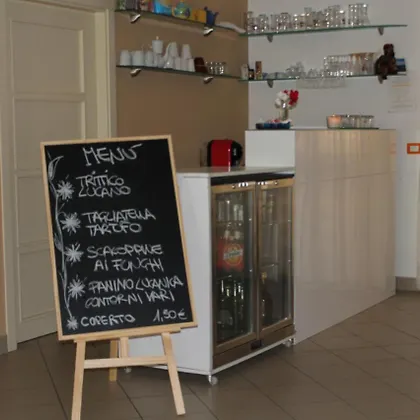 MENÙ
TRITTICO
LUCANO
TAGLIATELLA
TARTUFO
SCALOPPINE
AI FUNGHI
PANINO LUCANICA
CONTORNI VARI
COPERTO 1,50 €